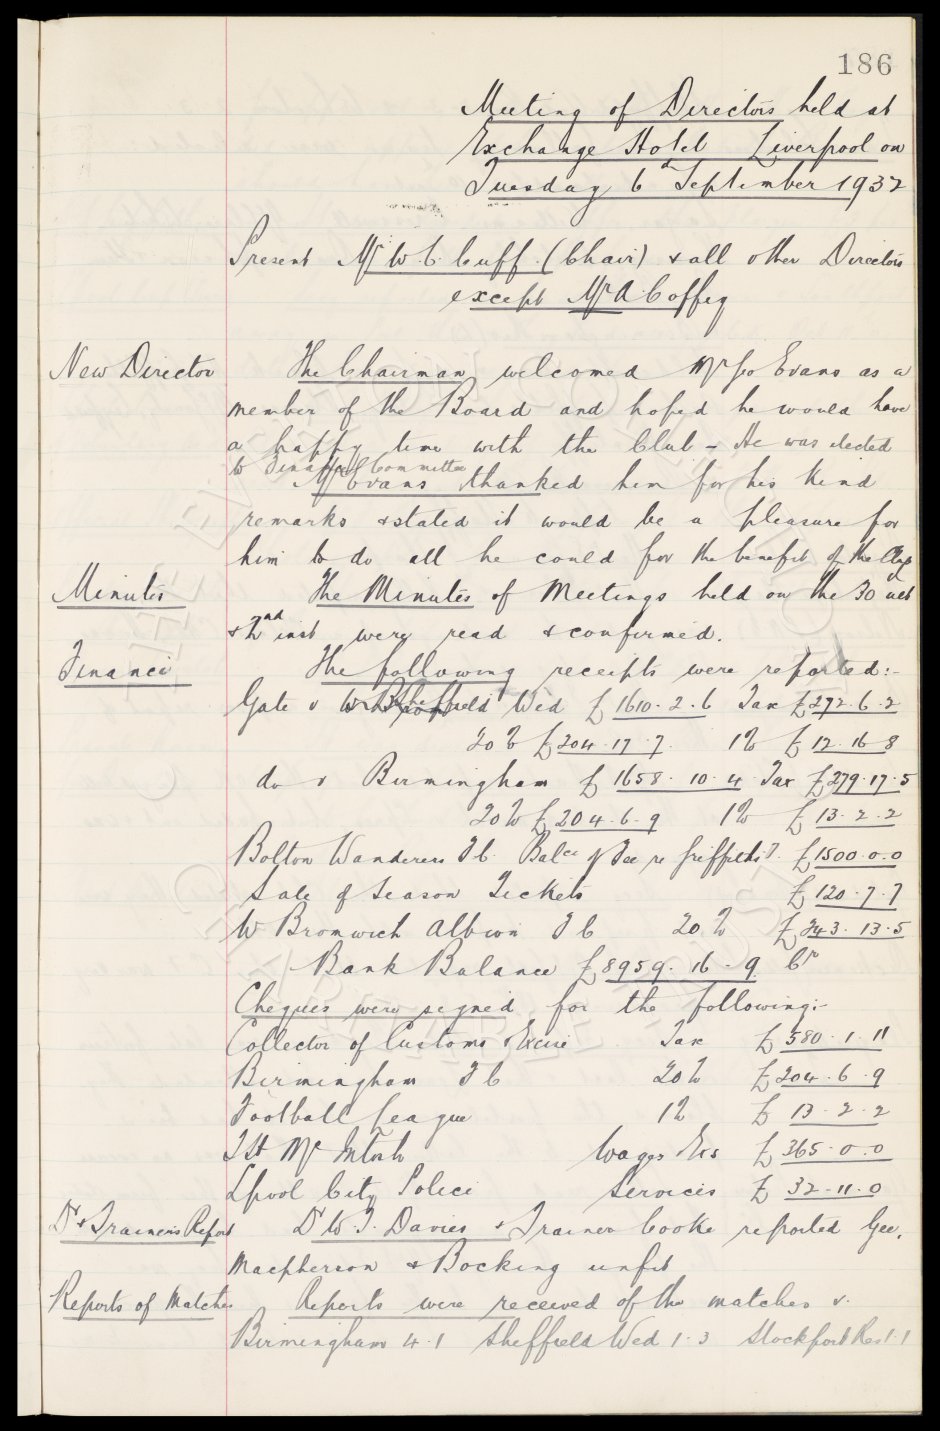 186
Meeting of Directors held at
Exchange Hotel Liverpool on
Tuesday 6th September 1932
Present Mr W. C. Cuff (Chair) & all other Directors
except Mr A. Coffey
New Director The Chairman welcomed Mr Jo Evans as a
member of the Board and hoped he would have
a happy time with the Club - He was elected
to Finance Committee
Mr Evans thanked him for his kind
remarks & stated it would be a pleasure for
him to do all he could for the benefit of the Club
Minutes The Minutes of Meetings held on the 30 ult
& 2nd inst were read & confirmed.
Finance The following receipts were reported:-
Gate v Sheffield Wed £1610.2.6 Tax £272.6.2
20% £204.17.7 1% £12.16.8
do v Birmingham £1658.10.4 Tax £279.17.5
20% £204.6.9 1% £13.2.2
Bolton Wanderers F C Balce of Fee re Griffiths T. £1500.0.0
Sale of Season Tickets £120.7.7
W Bromwich Albion F C 20% £243.13.5
Bank Balance £8959.16.9 Cr
Cheques were signed for the following:-
Collector of Customs & Excise Tax £580.1.11
Birmingham F C 20% £204.6.9
Football League 1% £13.2.2
T H Mc Intosh Wages Exs £365.0.0
Lpool City Police Services £32.11.0
Dr & Trainers Report Dr W. F. Davies & Trainer Cooke reported Gee,
Macpherson & Bocking unfit
Reports of Matches Reports were received of the matches v.
Birmingham 4.1 Sheffield Wed 1.3 Stockport Res 1.1